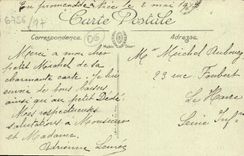 En promenade à Nice le 2 mai
Carte Postale
Correspondance
Adresse
Merci à mon cher
petit Michel de sa
charmante carte. Je lui
envoie de bons baisers
ainsi que au petit Dédé.
Nos respectueuses
salutations à Monsieur
et Madame.
Adrienne
Mr Michel Aubourg
23 rue Foubert
Le Havre
Seine Infre